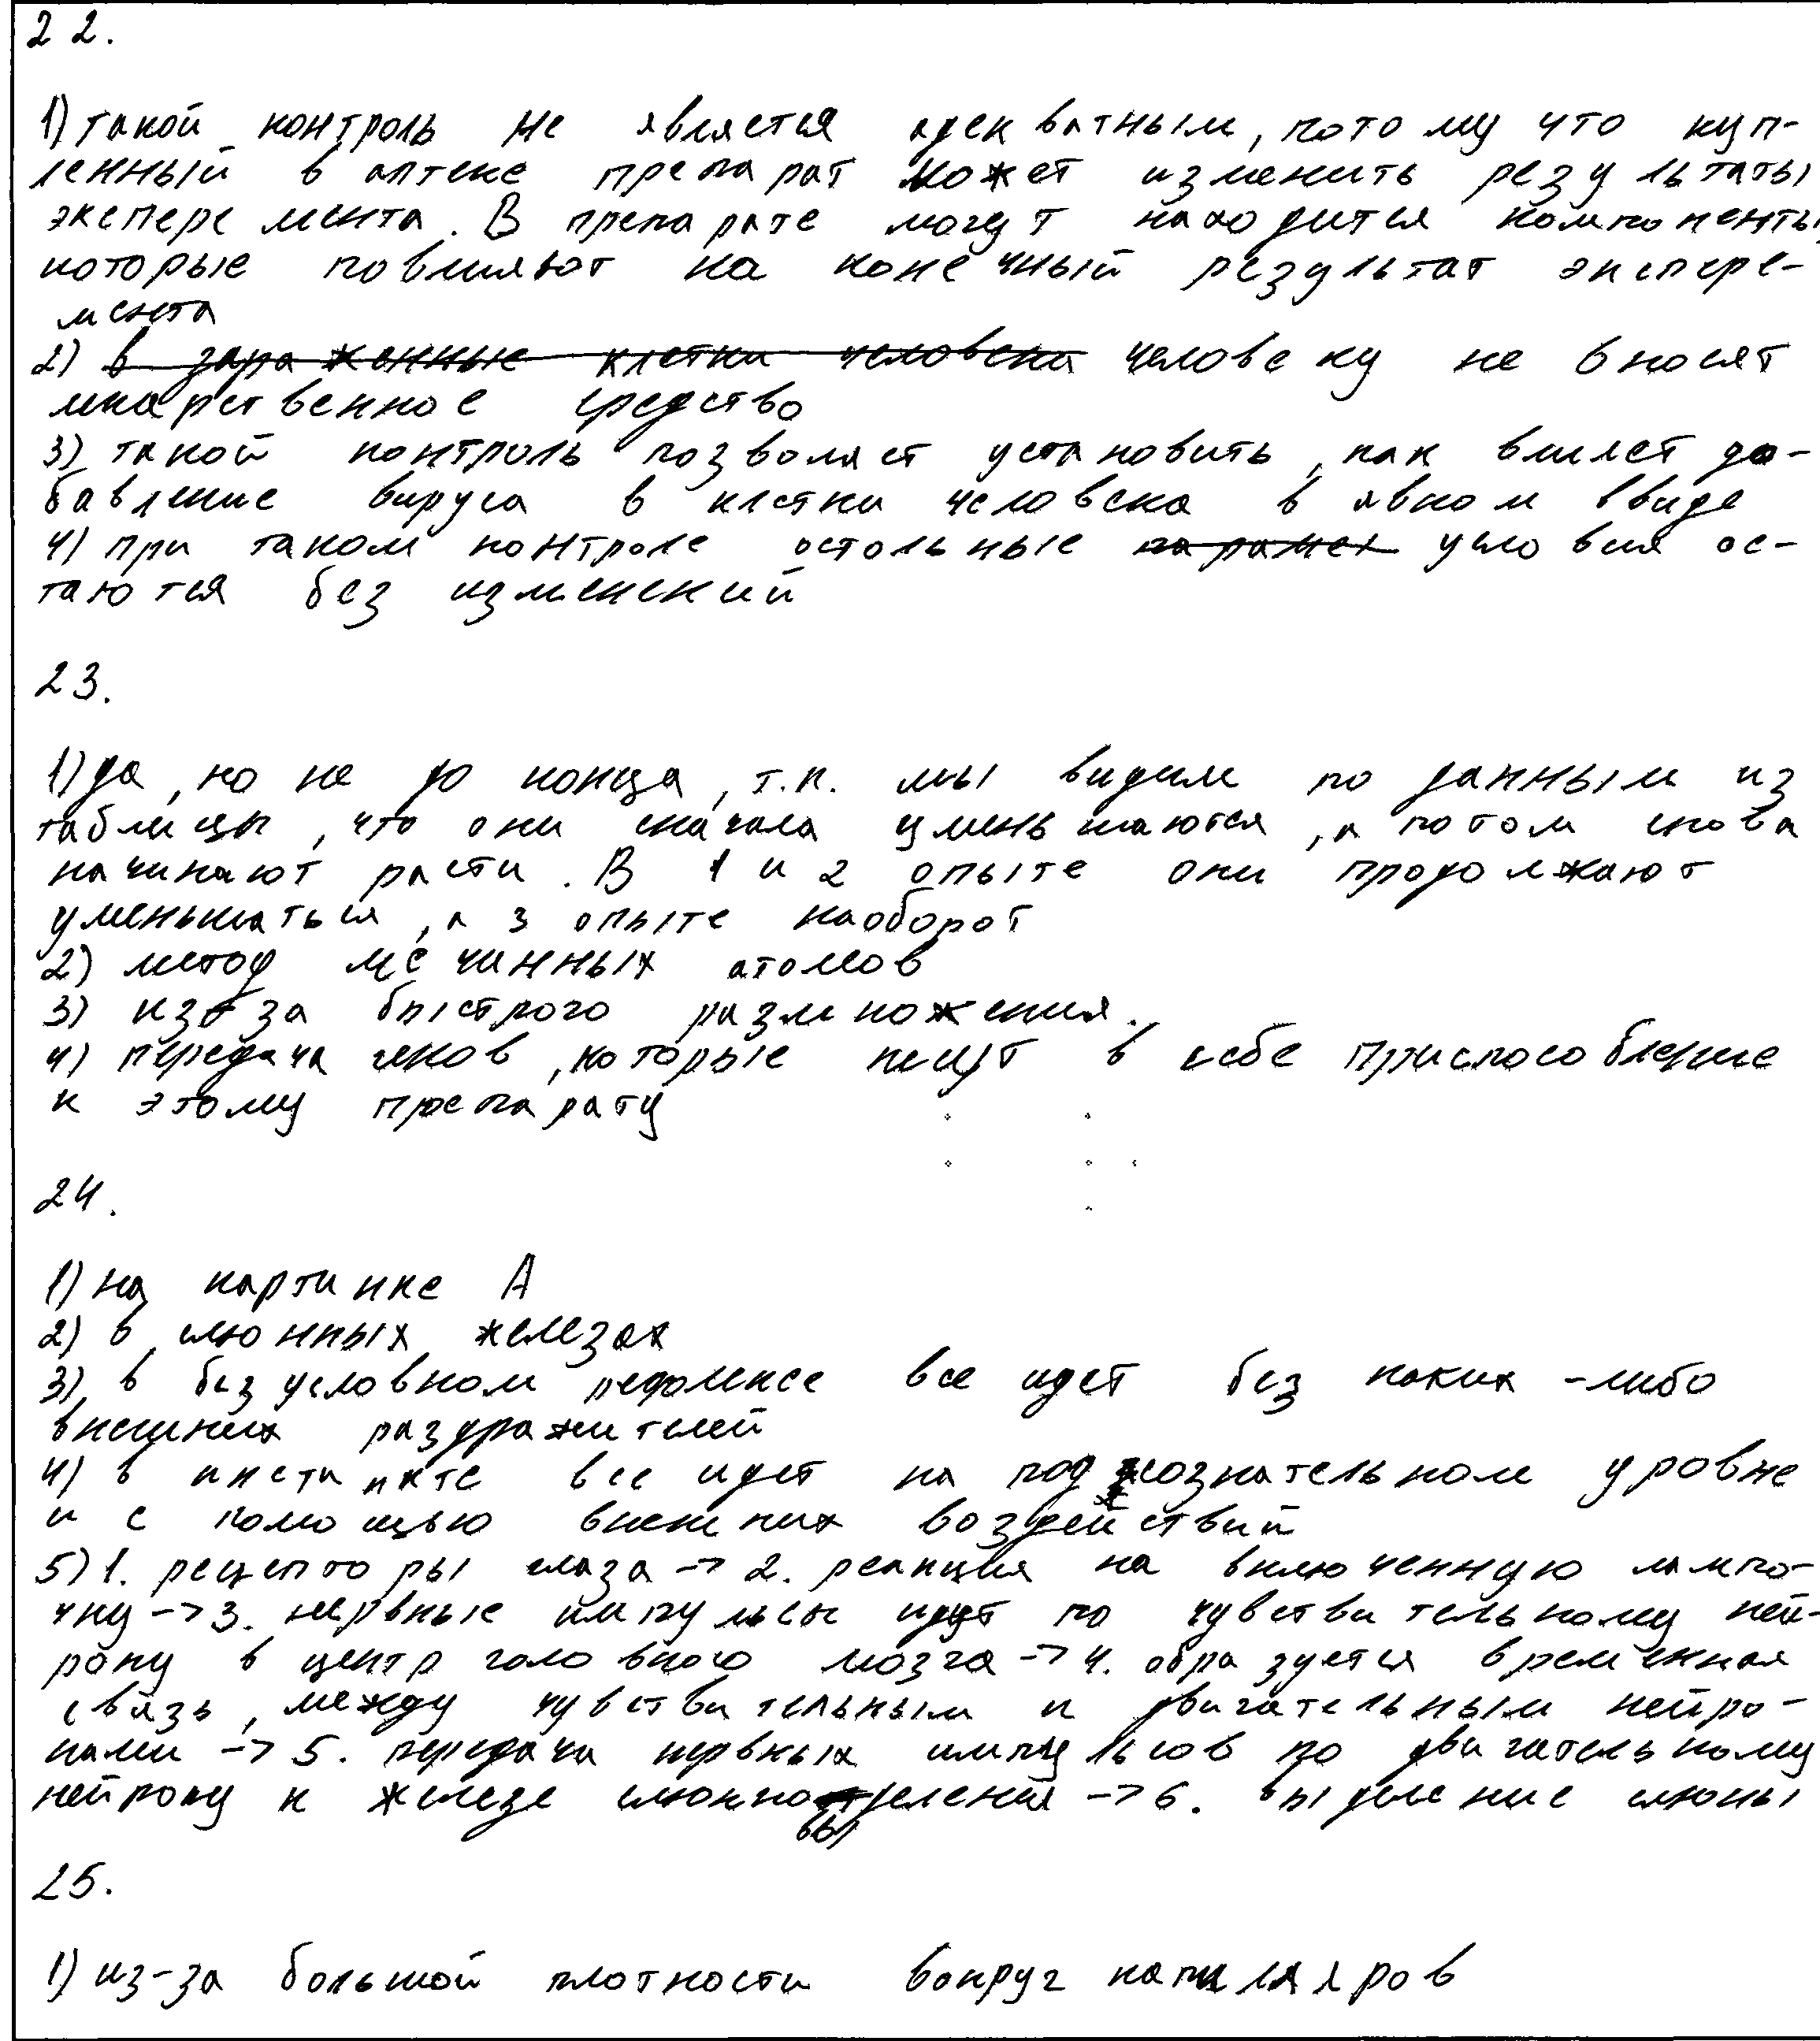 22.
1) такой контроль не является адекватным, потому что куп-
ленный в аптеке препарат может изменить результаты
эксперемента. В препарате могут находится компоненты,
которые повлияют на конечный результат экспере-
мента
2) в зараженные клетки человека человеку не вносят
лекарственное средство
3) такой контроль позволяет установить, как влияет до-
бавление вируса в клетки человека в явном ввиде
4) при таком контроле остольные парамет условия ос-
таются без изменений
23.
1) да, но не до конца, т.к. мы видим по данным из
таблицы, что они сначала уменьшаются, а потом снова
начинают расти. В 1 и 2 опыте они продолжают
уменьшаться, а 3 опыте наоборот
2) метод мечинных атомов
3) из-за быстрого размножения.
4) передача генов, которые несут в себе приспособление
к этому препарату
24.
1) на картинке А
2) в слюнных железах
3) в безусловном рефлексе все идет без каких-либо
внешних раздражителей
4) в инстинкте все идет на подсознательном уровне
и с помощью внешних воздействий
5) 1. рецепторы глаза -> 2. реакция на включенную лампо-
чку -> 3. нервные импульсы идут по чувствительному ней-
рону в центр головного мозга -> 4. образуется временная
связь, между чувствительным и двигательным нейро-
нами -> 5. передача нервных импульсов по двигательному
нейрону к железе слюновыделения -> 6. выделение слюны
25.
1) из-за большой плотности вокруг капилляров